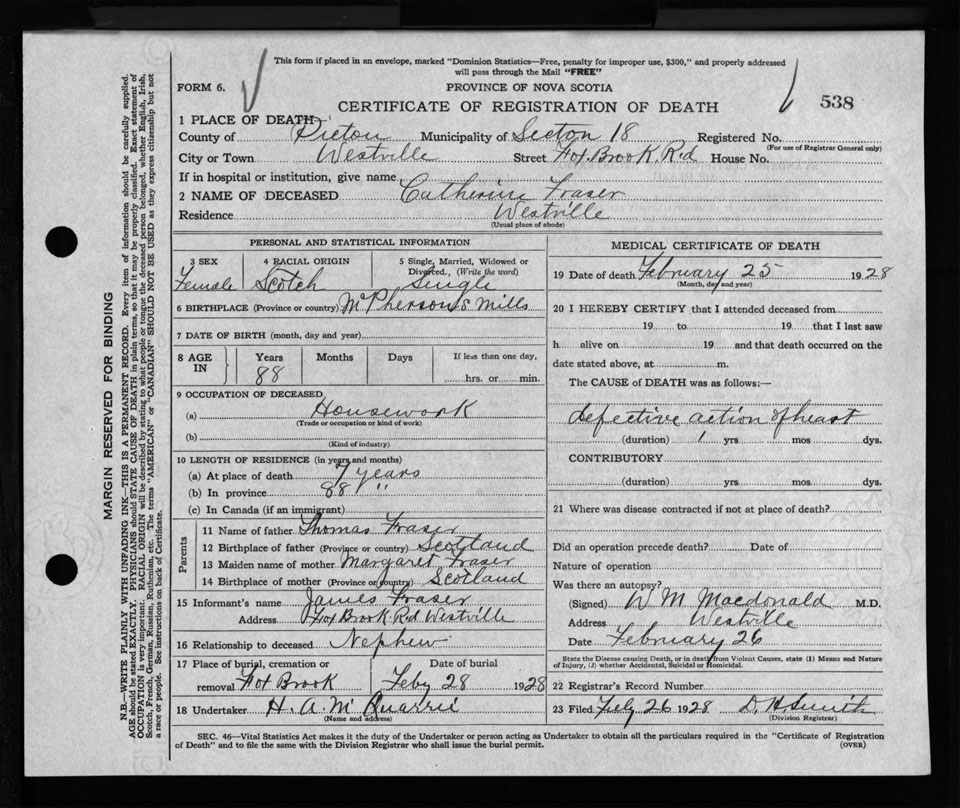 This form if placed in an envelope, marked "Dominion Statistics—Free, penalty for improper use, $300," and properly addressed
will pass through the Mail "FREE"
FORM 6.
PROVINCE OF NOVA SCOTIA
CERTIFICATE OF REGISTRATION OF DEATH
538
1 PLACE OF DEATH
County of Pictou Municipality of Section 18 Registered No.
(For use of Registrar General only)
City or Town Westville Street Fox Brook Rd House No.
If in hospital or institution, give name
2 NAME OF DECEASED Catherine Fraser
Residence Westville
(Usual place of abode)
MARGIN RESERVED FOR BINDING
N.B.—WRITE PLAINLY WITH UNFADING INK—THIS IS A PERMANENT RECORD. Every item of information should be carefully supplied.
AGE should be stated EXACTLY. PHYSICIANS should STATE CAUSE OF DEATH in plain terms, so that it may be properly classified. Exact statement of
OCCUPATION is very important. RACIAL ORIGIN will be described by stating to what people or tongue the deceased person belonged, whether English, Irish,
Scotch, French, German, Russian, Ruthenian, etc. The terms "AMERICAN" or "CANADIAN" SHOULD NOT BE USED as they express citizenship but not
a race or people. See instructions on back of Certificate.
PERSONAL AND STATISTICAL INFORMATION
3 SEX
Female
4 RACIAL ORIGIN
Scotch
5 Single, Married, Widowed or
Divorced, (Write the word)
Single
6 BIRTHPLACE (Province or country) McPhersons Mills
7 DATE OF BIRTH (month, day and year)
8 AGE IN
Years Months Days If less than one day,
88 hrs. or min.
9 OCCUPATION OF DECEASED
(a) Housework
(Trade or occupation or kind of work)
(b)
(Kind of industry)
10 LENGTH OF RESIDENCE (in years and months)
(a) At place of death 7 years
(b) In province 88 "
(c) In Canada (if an immigrant)
Parents
11 Name of father Thomas Fraser
12 Birthplace of father (Province or country) Scotland
13 Maiden name of mother Margaret Fraser
14 Birthplace of mother (Province or country) Scotland
15 Informant's name James Fraser
Address Fox Brook Rd Westville
16 Relationship to deceased Nephew
17 Place of burial, cremation or Date of burial
removal Fox Brook Feby 28 1928
18 Undertaker H. A. McQuarrie
(Name and address)
MEDICAL CERTIFICATE OF DEATH
19 Date of death February 25 1928
(Month, day and year)
20 I HEREBY CERTIFY that I attended deceased from
19 to 19 that I last saw
h alive on 19 and that death occurred on the
date stated above, at m.
The CAUSE of DEATH was as follows:—
defective action of heart
(duration) 1 yrs. mos. dys.
CONTRIBUTORY
(duration) yrs. mos. dys.
21 Where was disease contracted if not at place of death?
Did an operation precede death? Date of
Nature of operation
Was there an autopsy?
(Signed) W M Macdonald M.D.
Address Westville
Date February 26
State the Disease causing Death, or in death from Violent Causes, state (1) Means and Nature
of Injury, (2) whether Accidental, Suicidal or Homicidal.
22 Registrar's Record Number
23 Filed Feby 26 1928 D. H. Smith
(Division Registrar)
SEC. 46—Vital Statistics Act makes it the duty of the Undertaker or person acting as Undertaker to obtain all the particulars required in the "Certificate of Registration
of Death" and to file the same with the Division Registrar who shall issue the burial permit.
(OVER)